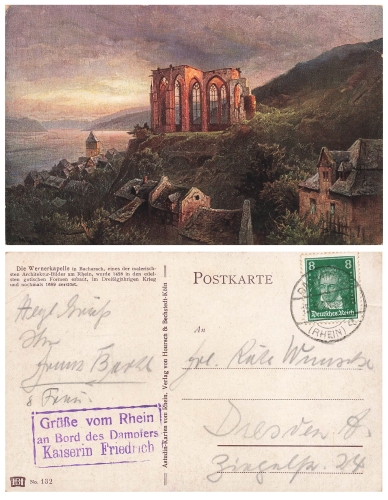 Die Wernerkapelle in Bacharach, eines der malerisch-
sten Architektur-Bilder am Rhein, wurde 1428 in den edel-
sten gotischen Formen erbaut, im Dreißigjährigen Krieg
und nochmals 1689 zerstört.
Herzl. Grüße
Ihr
Franz Barth
& Frau
Grüße vom Rhein
an Bord des Dampfers
Kaiserin Friedrich
No. 132
Astudin-Karten vom Rhein, Verlag von Hoursch & Bechstedt-Köln
POSTKARTE
8 8
Deutsches Reich
(RHEIN)
An
Frl. Käte Wunsche
Dresden A.
Ziegelstr. 24